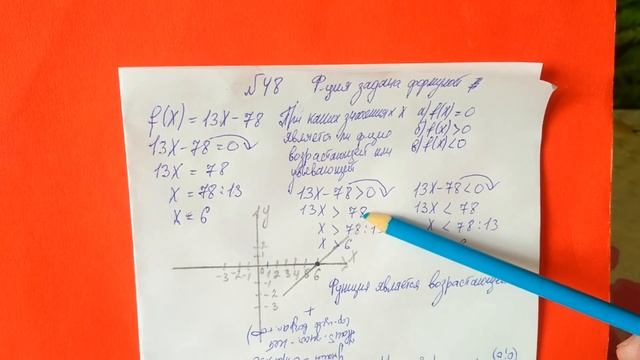 №48 Ф-ция задана формулой
f(x) = 13x - 78 При каких значениях x а) f(x) = 0
является ли ф-ция б) f(x) > 0
возрастающей или в) f(x) < 0
убывающей
13x - 78 = 0
13x = 78
x = 78 : 13
x = 6
13x - 78 > 0
13x > 78
x > 78 : 13
x > 6
13x - 78 < 0
13x < 78
x < 78 : 13
6
y
x
-3 -2 -1 0 1 2 3 4 5 6
2
1
-1
-2
-3
Функция является возрастающей
+